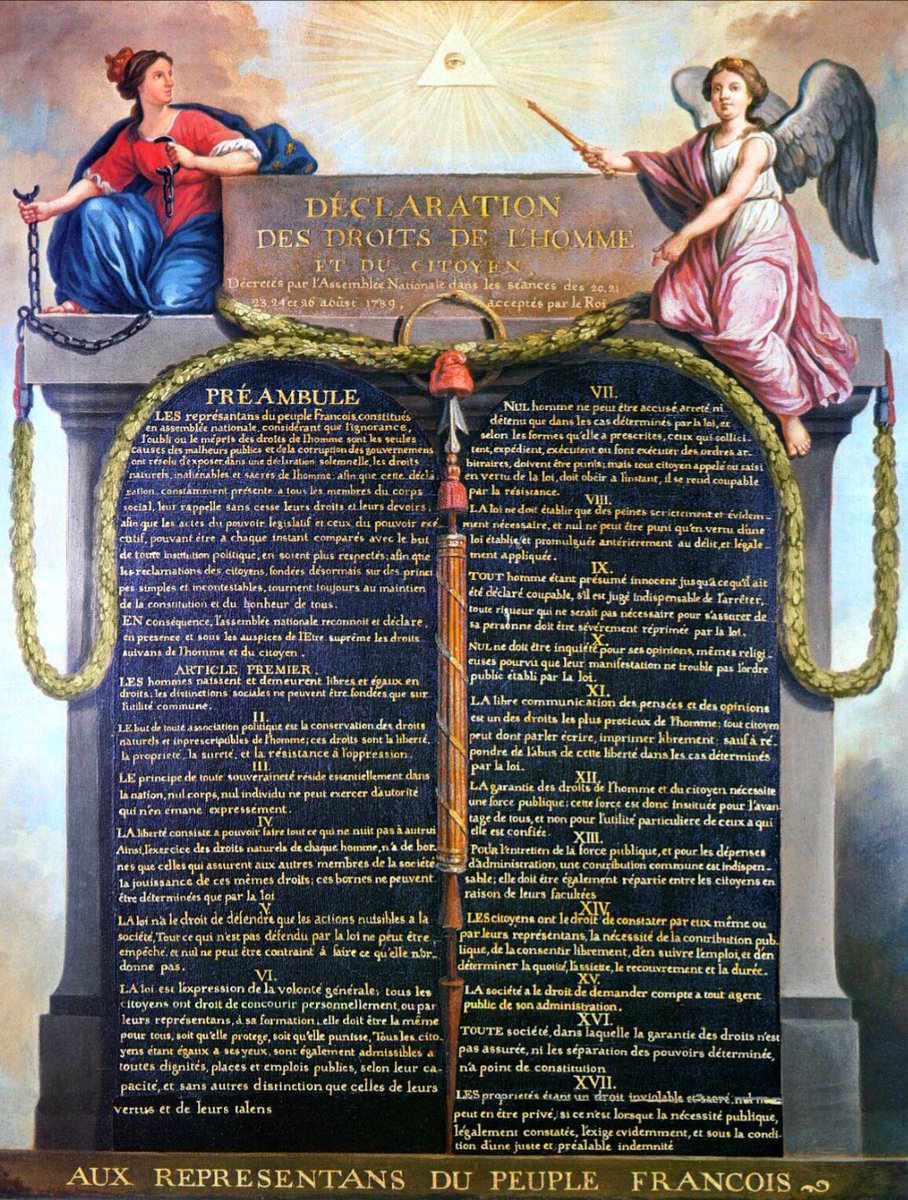 DÉCLARATION
DES DROITS DE L'HOMME
ET DU CITOYEN,
Décretés par l'Assemblée Nationale dans les séances des 20, 21
23, 24 et 26 août 1789, acceptés par le Roi
PRÉAMBULE
LES représantans du peuple François, constitués
en assemblée nationale, considérant que l'ignorance,
l'oubli ou le mépris des droits de l'homme sont les seules
causes des malheurs publics et de la corruption des gouvernemens
ont résolu d'exposer dans une déclaration solemnelle, les droits
naturels, inaliénables et sacrés de l'homme; afin que cette décla
ration, constamment présente a tous les membres du corps
social, leur rappelle sans cesse leurs droits et leurs devoirs,
afin que les actes du pouvoir legislatif et ceux du pouvoir exé
cutif, pouvant être a chaque instant comparés avec le but
de toute institution politique, en soient plus respectés; afin que
les reclamations des citoyens, fondées désormais sur des princi
pes simples et incontestables, tournent toujours au maintien
de la constitution et du bonheur de tous.
EN conséquence, l'assemblée nationale reconnoit et déclare,
en presence et sous les auspices de l'Etre suprême les droits
suivans de l'homme et du citoyen.
ARTICLE PREMIER.
LES hommes naissent et demeurent libres et égaux en
droits; les distinctions sociales ne peuvent être fondées que sur
l'utilité commune.
II.
LE but de toute association politique est la conservation des droits
naturels et inprescriptibles de l'homme; ces droits sont la liberté,
la proprieté, la sureté, et la résistance à l'oppression.
III.
LE principe de toute souveraineté réside essentiellement dans
la nation, nul corps, nul individu ne peut exercer d'autorité
qui n'en émane expressément.
IV.
LA liberté consiste a pouvoir faire tout ce qui ne nuit pas à autrui
Ainsi, l'exercice des droits naturels de chaque homme, n'à de bor-
nes que celles qui assurent aux autres membres de la société
la jouissance de ces mêmes droits; ces bornes ne peuvent
être déterminées que par la loi
V.
LA loi n'à le droit de défendre que les actions nuisibles a la
société, Tout ce qui n'est pas défendu par la loi ne peut être
empêché, et nul ne peut être contraint à faire ce qu'elle n'or-
donne pas.
VI.
LA loi est l'expression de la volonté générale; tous les
citoyens ont droit de concourir personnellement, ou par
leurs représentans, à sa formation; elle doit être la même
pour tous, soit qu'elle protege, soit qu'elle punisse, Tous les cito-
yens étant égaux a ses yeux, sont également admissibles a
toutes dignités, places et emplois publics, selon leur ca-
pacité, et sans autres distinction que celles de leurs
vertus et de leurs talens
VII.
NUL homme ne peut être accusé, arreté, ni
détenu que dans les cas déterminés par la loi, et
selon les formes qu'elle a prescrites, ceux qui sollici-
tent, expédient, exécutent ou font exécuter des ordres ar-
bitraires, doivent être punis; mais tout citoyen appelé ou saisi
en vertu de la loi, doit obéir a l'instant, il se rend coupable
par la résistance.
VIII.
LA loi ne doit établir que des peines strictement et évidem-
ment nécessaire, et nul ne peut être puni qu'en vertu d'une
loi établie et promulguée antérierement au délit, et légale-
ment appliquée.
IX.
TOUT homme étant présumé innocent jusqu'à ce qu'il ait
été déclaré coupable, s'il est jugé indispensable de l'arrêter,
toute rigueur qui ne serait pas nécessaire pour s'assurer de
sa personne doit être sévérement réprimée par la loi.
X.
NUL ne doit être inquiété pour ses opinions, mêmes religi-
euses pourvu que leur manifestation ne trouble pas l'ordre
public établi par la loi.
XI.
LA libre communication des pensées et des opinions
est un des droits les plus precieux de l'homme; tout citoyen
peut dont parler écrire, imprimer librement; sauf à ré-
pondre de l'abus de cette liberté dans les cas déterminés
par la loi.
XII.
LA garantie des droits de l'homme et du citoyen nécessite
une force publique; cette force est donc instituée pour l'avan-
tage de tous, et non pour l'utilité particuliere de ceux a qui
elle est confiée.
XIII.
POUR l'entretien de la force publique, et pour les dépenses
d'administration, une contribution commune est indispen-
sable; elle doit être également répartie entre les citoyens en
raison de leurs facultées
XIV.
LES citoyens ont le droit de constater par eux même ou
par leurs représentans, la nécessité de la contribution pub-
lique, de la consentir librement, d'en suivre l'emploi, et d'en
déterminer la quotité, l'assiette, le recouvrement et la durée.
XV.
LA société a le droit de demander compte a tout agent
public de son administration.
XVI.
TOUTE société, dans laquelle la garantie des droits n'est
pas assurée, ni les séparation des pouvoirs déterminée,
n'a point de constitution
XVII.
LES proprietés étant un droit inviolable et sacré, nul ne
peut en être privé, si ce n'est lorsque la nécessité publique,
légalement constatée, l'exige evidemment, et sous la condi
tion d'une juste et préalable indemnité
AUX REPRESENTANS DU PEUPLE FRANCOIS